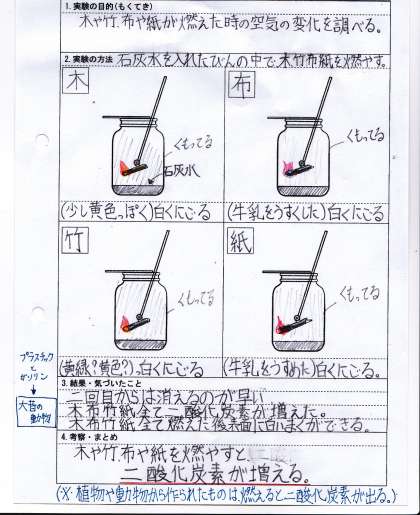 1. 実験の目的(もくてき)
木や竹、布や紙が燃えた時の空気の変化を調べる。
2. 実験の方法 石灰水を入れたびんの中で、木竹布紙を燃やす。
木
くもってる
石灰水
(少し黄色っぽく)白くにごる
布
くもってる
(牛乳をうすくした)白くにごる
竹
くもってる
(黄緑?黄色?)っ白くにごる
紙
くもってる
(牛乳をうすめた)白くにごる。
プラスチック
と
ガソリン
大昔の
動物
3. 結果・気づいたこと
二回目からは消えるのが早い
木布竹紙全て二酸化炭素が増えた。
木布竹紙全て燃えた後表面に白いまくができる。
4. 考察・まとめ
木や竹布や紙を燃やすと、
二酸化炭素が増える。
(※植物や動物から作られたものは、燃えると二酸化炭素が出る。)